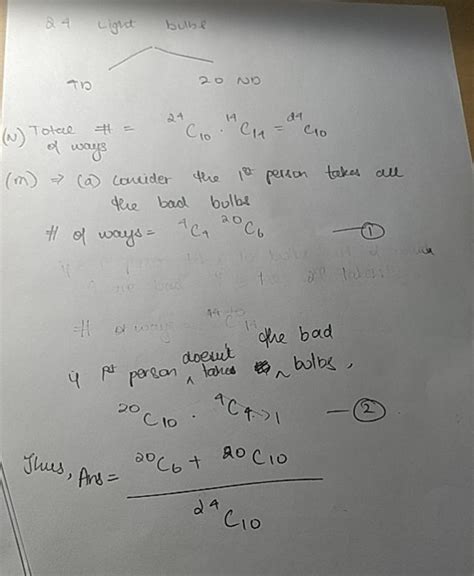 24 Light bulbs
4D 20 ND
(N) Total # of ways = ²⁴C₁₀ · ¹⁴C₁₄ = ²⁴C₁₀
(m) ⇒ (a) consider the 1st person takes all
the bad bulbs
# of ways = ⁴C₄ ²⁰C₆ — ①
# of ways
if 1st person doesn't take the bad bulbs,
²⁰C₁₀ · ⁴C₄ → 1 — ②
Thus, Ans = ²⁰C₆ + ²⁰C₁₀
²⁴C₁₀